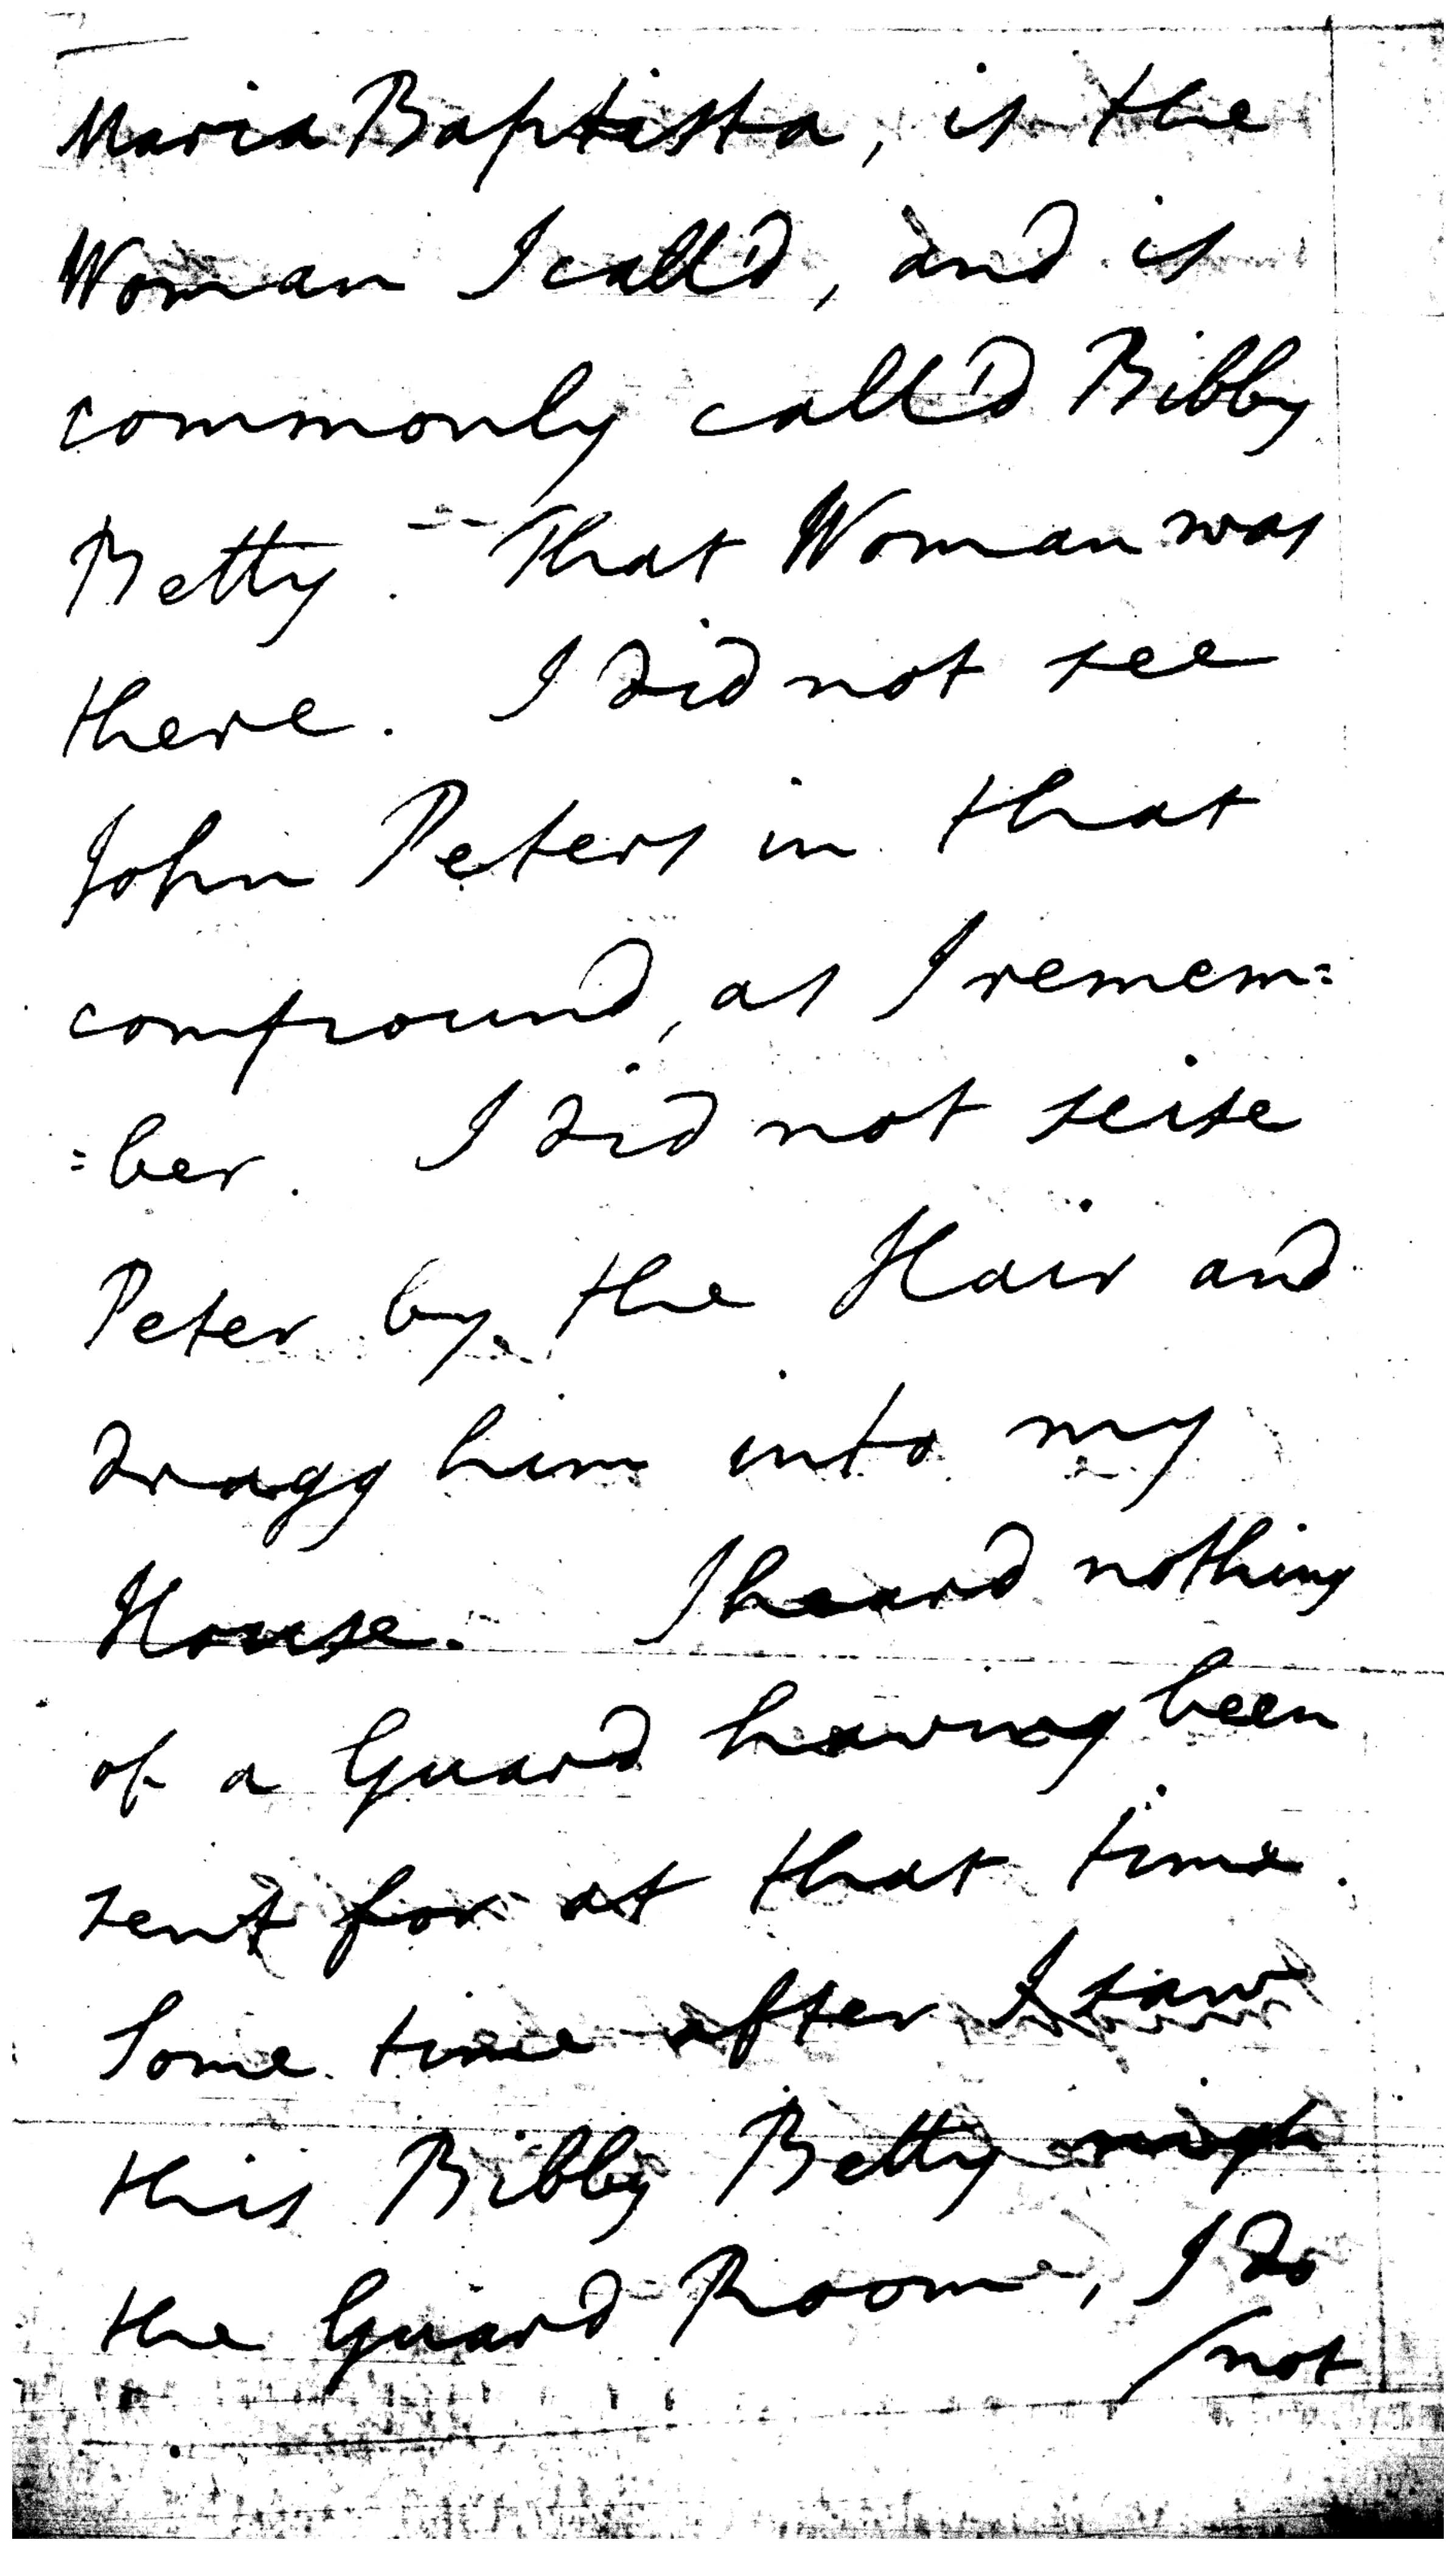 Maria Baptista, is the
Woman I call'd, and is
commonly call'd Bibby
Betty. That Woman was
there. I did not see
John Peters in that
compound, as I remem=
=ber. I did not seise
Peter by the Hair and
dragg him into my
House. I heard nothing
of a Guard having been
sent for at that time.
Some time after I saw
this Bibby Betty nigh
the Guard Room, I do
/not